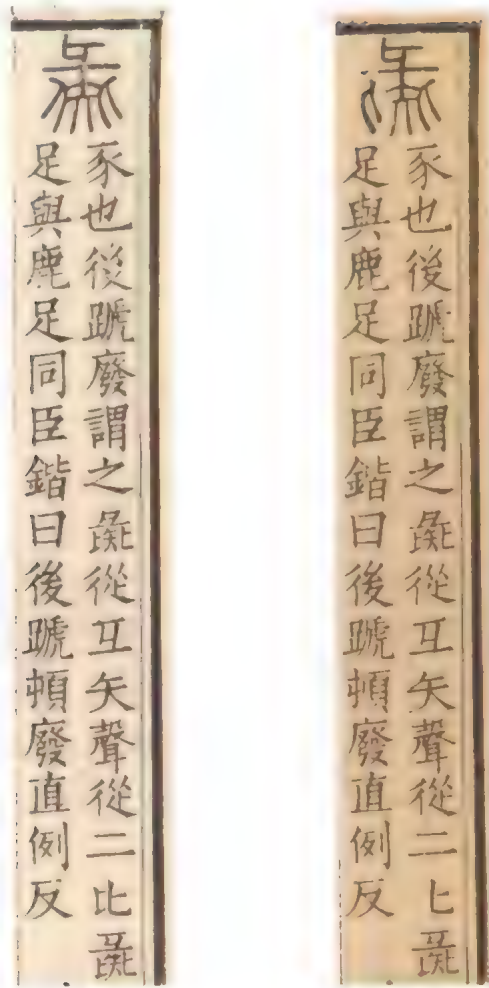 彘
豕也後蹏廢謂之彘從互矢聲從二匕彘
足與鹿足同臣鍇曰後蹏頓廢直例反
彘
豕也後蹏廢謂之彘從互矢聲從二比彘
足與鹿足同臣鍇曰後蹏頓廢直例反